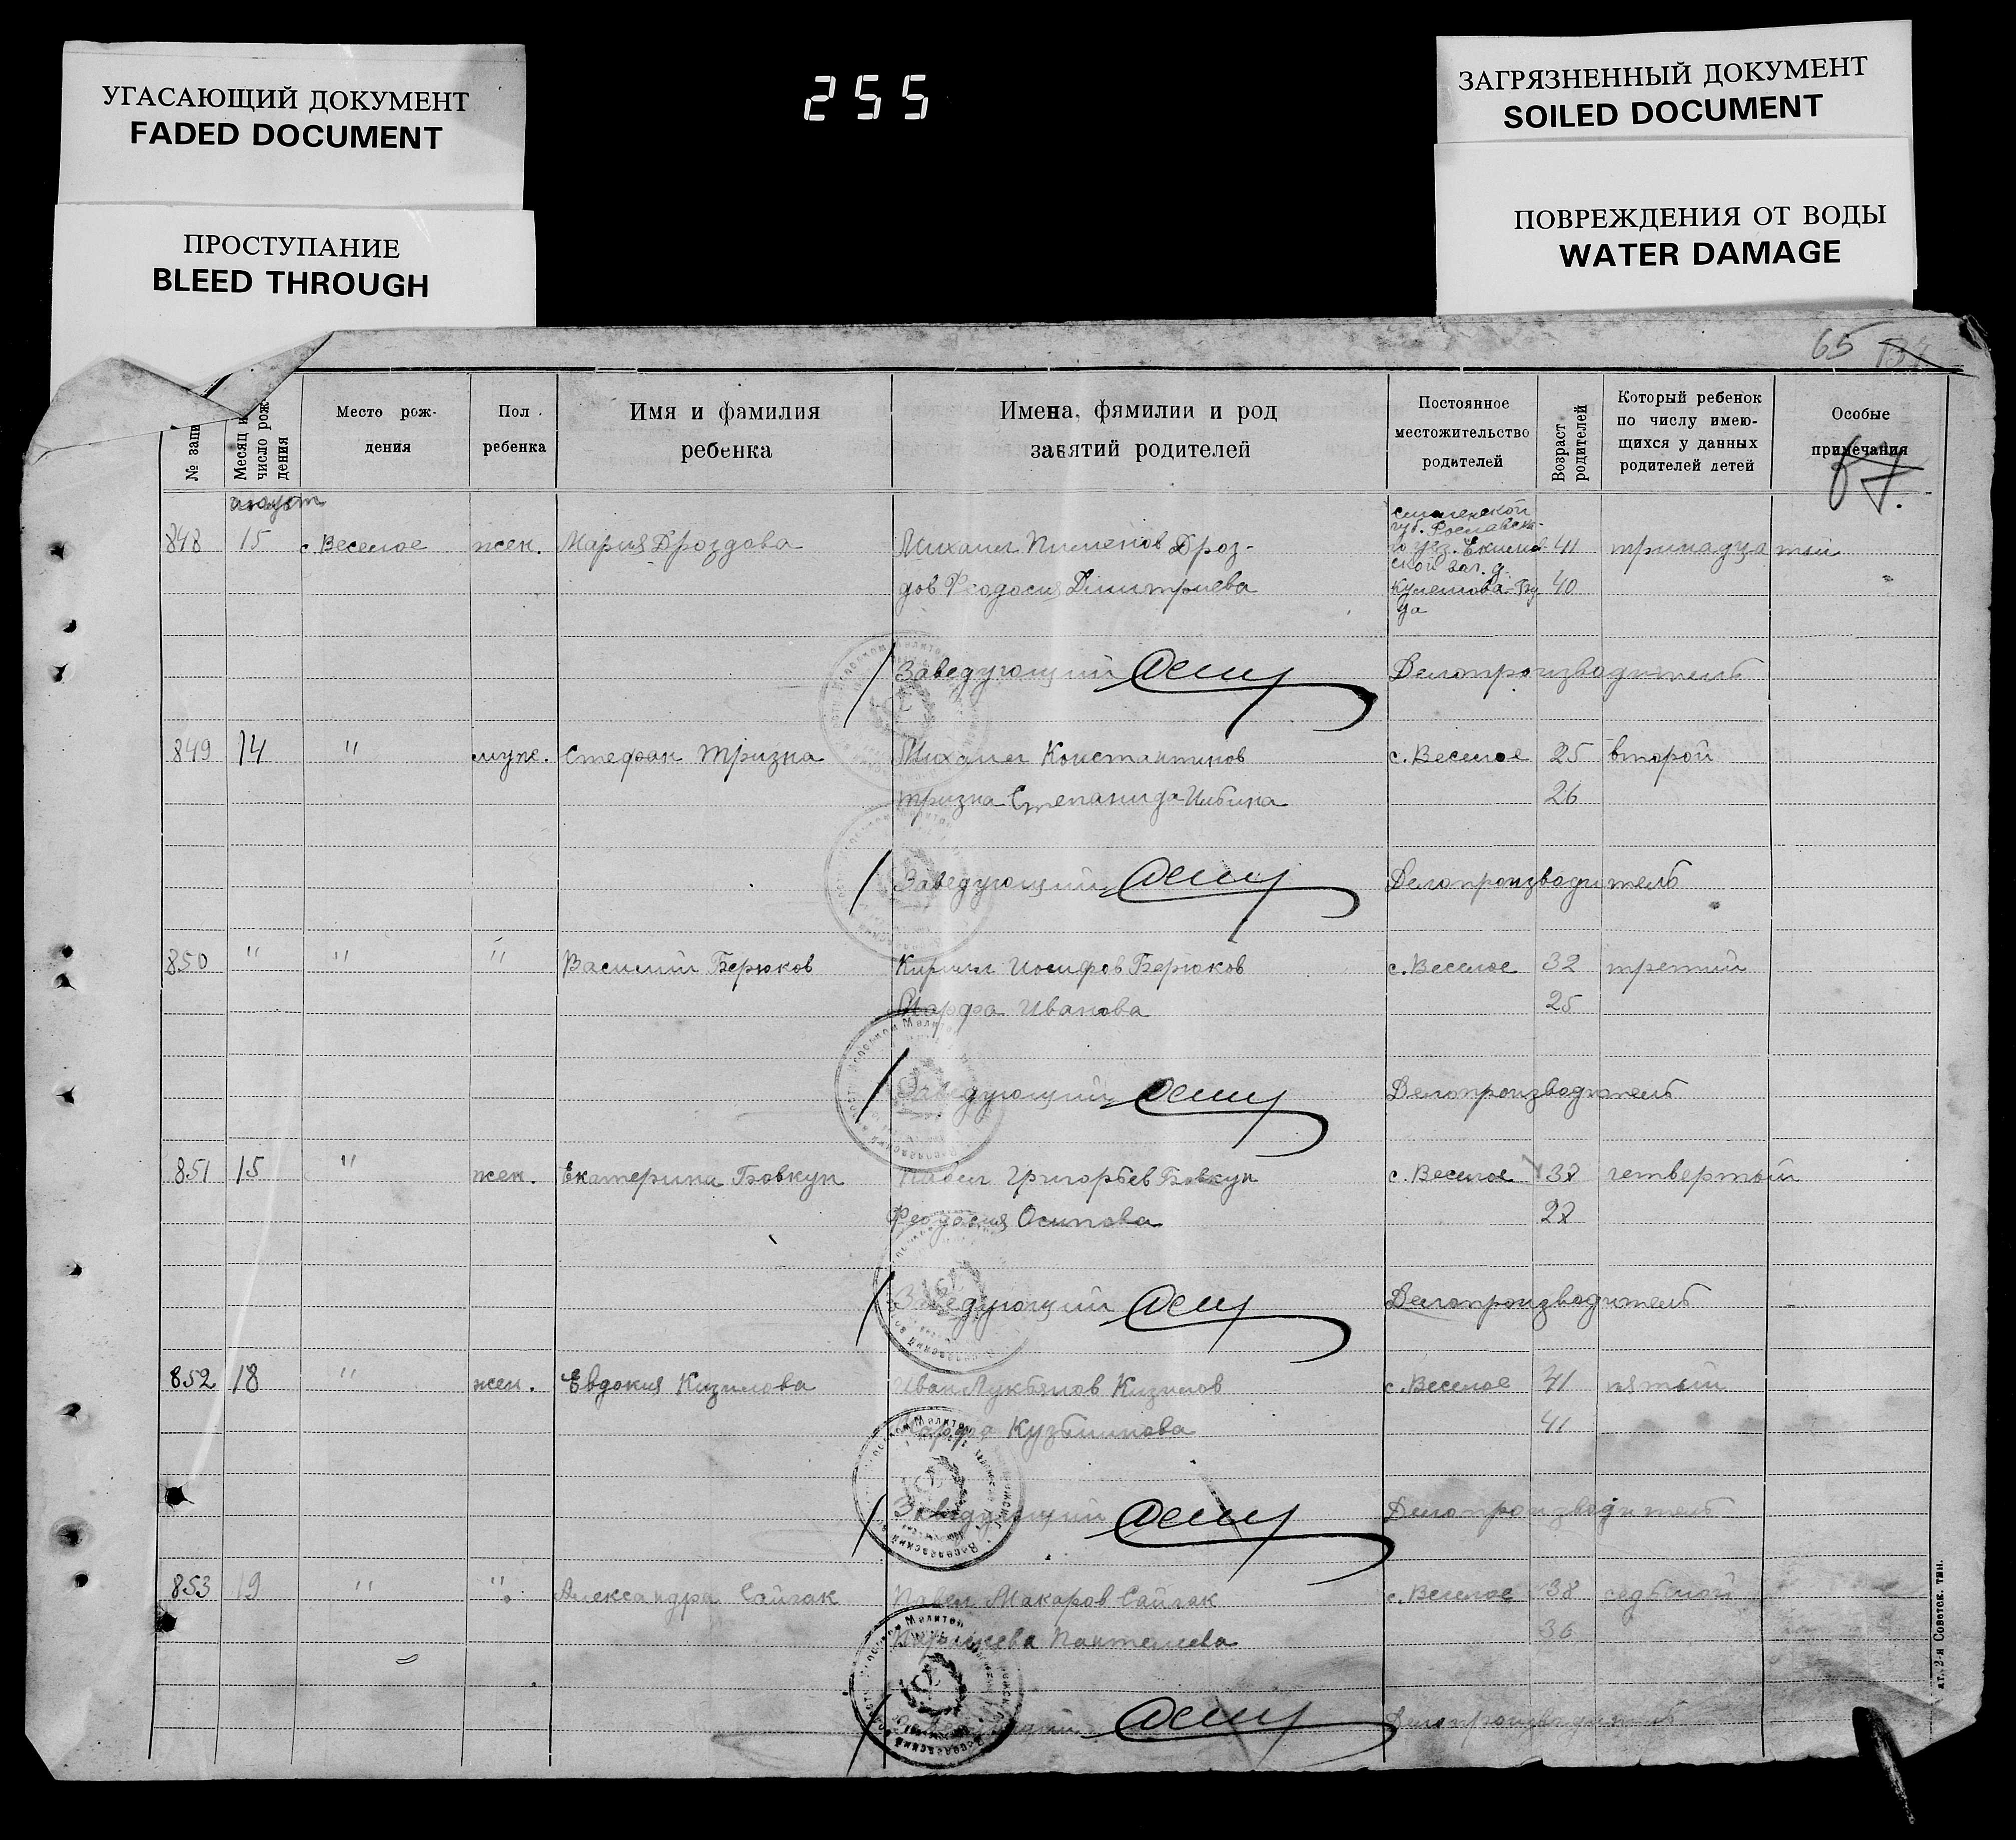 УГАСАЮЩИЙ ДОКУМЕНТ
FADED DOCUMENT
ПРОСТУПАНИЕ
BLEED THROUGH
255
ЗАГРЯЗНЕННЫЙ ДОКУМЕНТ
SOILED DOCUMENT
ПОВРЕЖДЕНИЯ ОТ ВОДЫ
WATER DAMAGE
65
№ запи
Месяц и число рождения
Место рож-
дения
Пол
ребенка
Имя и фамилия
ребенка
Имена, фямилии и род
занятий родителей
Постоянное
местожительство
родителей
Возраст
родителей
Который ребенок
по числу имею-
щихся у данных
родителей детей
Особые
примечания
67.
август
848 15 с Веселое жен. Мария Дроздова Михаил Пименов Дроз- 41 тринадцатый
дов Феодосия Димитриева 40
смоленской
губ. Рославск-
да
Заведующий Делопроизводитель
849 14 " муж. Стефан Тризна Михаил Константинов с. Веселое 25 второй
Тризна Степанида Ильина 26
Заведующий Делопроизводитель
850 " " " Василий Берюков Кирилл Иосифов Берюков с. Веселое 32 третий
Марфа Иванова 25
Заведующий Делопроизводитель
851 15 " жен. Екатерина Бовкун Павел Григорьев Бовкун с. Веселое 37 четвертый
Феодосия Осипова 27
Заведующий Делопроизводитель
852 18 " жен. Евдокия Кизилова Иван Лукьянов Кизилов с. Веселое 41 пятый
Марфа Кузьминова 41
Заведующий Делопроизводитель
853 19 " " Александра Сайгак Павел Макаров Сайгак с. Веселое 38 седьмой
Пантелеева 36
Заведующий Делопроизводитель
2-я Советск. тип.